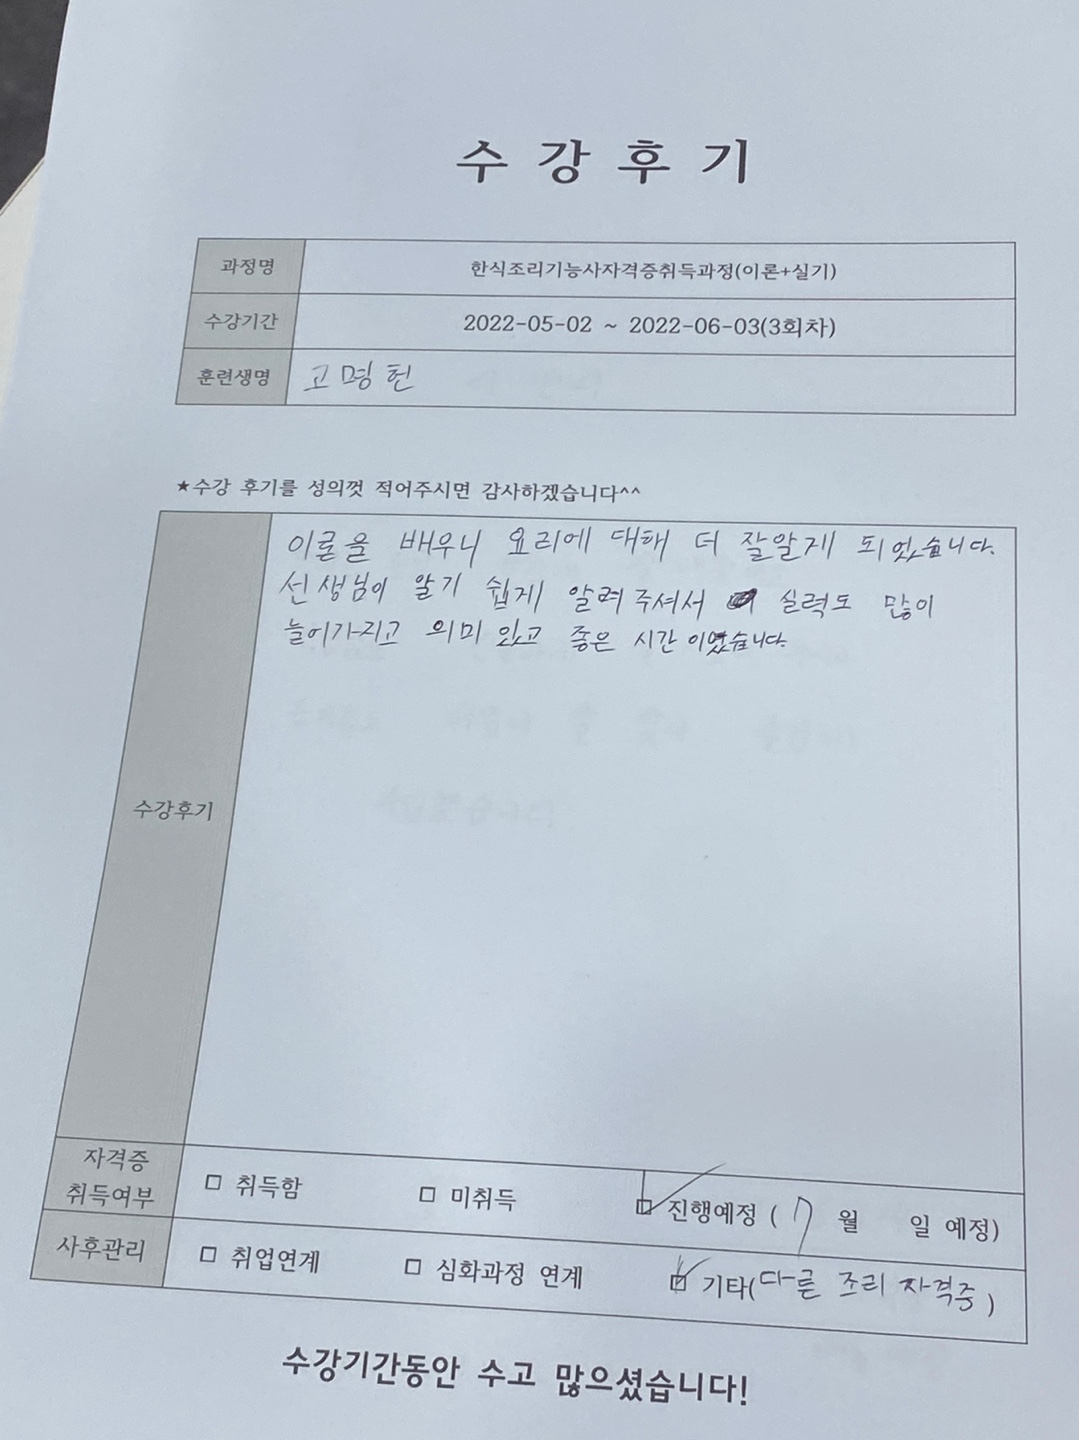 수 강 후 기
과정명 한식조리기능사자격증취득과정(이론+실기)
수강기간 2022-05-02 ~ 2022-06-03(3회차)
훈련생명 고명헌
★수강 후기를 성의껏 적어주시면 감사하겠습니다^^
이론을 배우니 요리에 대해 더 잘알게 되었습니다.
선생님이 알기 쉽게 알려주셔서 실력도 많이
늘어가지고 의미있고 좋은 시간이였습니다.
수강후기
자격증
취득여부 □ 취득함 □ 미취득 ☑ 진행예정 ( 7 월 일 예정)
사후관리 □ 취업연계 □ 심화과정 연계 ☑ 기타(다른 조리 자격증)
수강기간동안 수고 많으셨습니다!